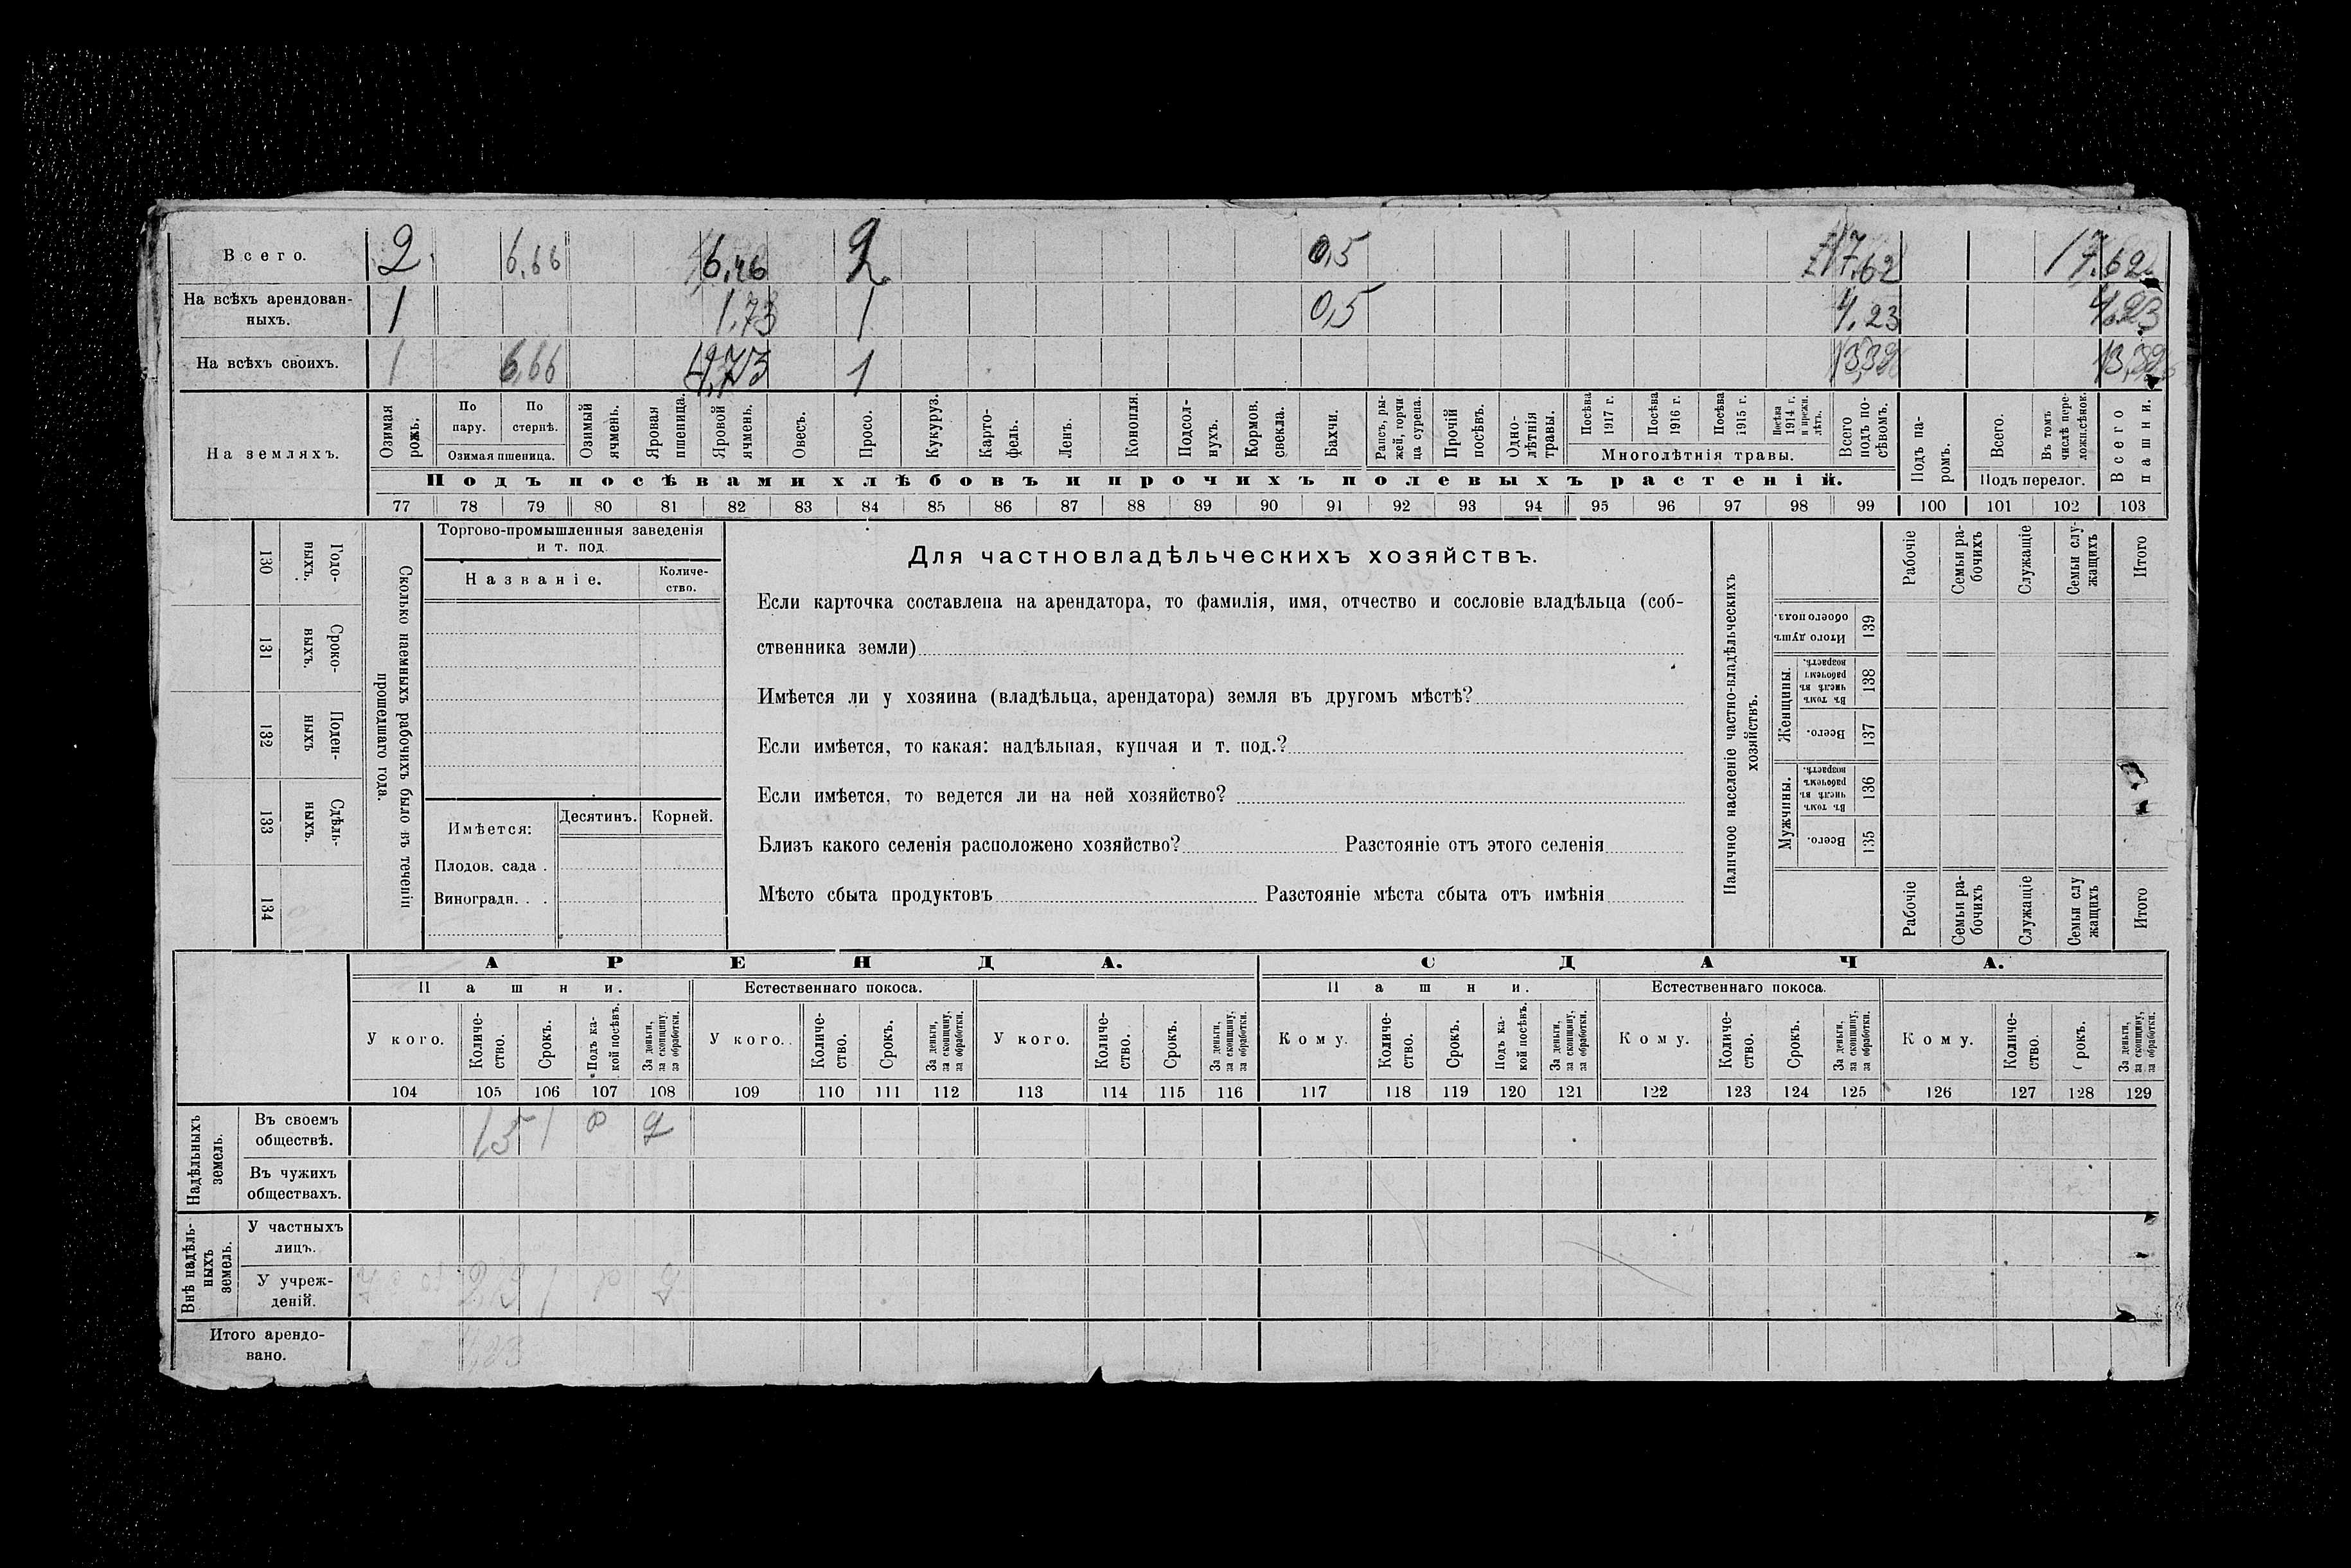 Всего. 2. 6,66 6,46 2 0,5 17,62 17,62
На всѣхъ арендован-
ныхъ. 1 1,73 1 0,5 4,23 4,23
На всѣхъ своихъ. 1 6,66 4,73 1
На земляхъ.
Озимая рожь.
По пару.
По стернѣ.
Озимая пшеница.
Озимый ячмень.
Яровая пшеница.
Яровой ячмень.
Овесъ.
Просо.
Кукуруз.
Карто-
фель.
Ленъ.
Конопля.
Подсол-
нухъ.
Кормов. свекла.
Бахчи.
Рапсъ, ры-
жей, горчи
ца сурепа.
Прочій посѣвъ.
Одно-
лѣтнія
травы.
Посѣва 1917 г.
Посѣва 1916 г.
Посѣва 1915 г.
Посѣва 1914 г. и прежн. лѣтъ.
Многолѣтнія травы.
Всего подъ по-
сѣвомъ.
Подъ па-
ромъ.
Всего.
Въ томъ числѣ пере-
ложн. сѣнок.
Подъ перелог.
Всего пашни.
Подъ посѣвами хлѣбовъ и прочихъ полевыхъ растеній.
77 78 79 80 81 82 83 84 85 86 87 88 89 90 91 92 93 94 95 96 97 98 99 100 101 102 103
130 Годо-
ныхъ.
131 Сроко-
выхъ.
132 Поден-
ныхъ
133 Сдѣль-
ныхъ.
134
Сколько наемныхъ рабочихъ было въ теченіи
прошедшаго года.
Торгово-промышленныя заведенія
и т. под.
Названіе.
Количе-
ство.
Имѣется:
Десятинъ. Корней.
Плодов. сада .
Виноградн. . .
Для частновладѣльческихъ хозяйствъ.
Если карточка составлена на арендатора, то фамилія, имя, отчество и сословіе владѣльца (соб-
ственника земли)
Имѣется ли у хозяина (владѣльца, арендатора) земля въ другомъ мѣстѣ?
Если имѣется, то какая: надѣльная, купчая и т. под.?
Если имѣется, то ведется ли на ней хозяйство?
Близъ какого селенія расположено хозяйство? Разстояніе отъ этого селенія
Мѣсто сбыта продуктовъ Разстояніе мѣста сбыта отъ имѣнія
Наличное населеніе частно-владѣльческихъ
хозяйствъ.
Рабочіе
Семьи ра-
бочихъ
Служащіе
Семьи слу-
жащихъ
Итого
Итого душъ обоего пола. 139
Женщины.
Въ томъ числѣ въ рабочемъ возрастѣ. 138
Всего. 137
Мужчины.
Въ томъ числѣ въ рабочемъ возрастѣ. 136
Всего. 135
Рабочіе
Семьи ра-
бочихъ
Служащіе
Семьи слу
жащихъ
Итого
АРЕНДА. СДАЧА.
Пашни. Естественнаго покоса. Пашни. Естественнаго покоса.
У кого.
Количе-
ство.
Срокъ.
Подъ ка-
кой посѣвъ.
За деньги, за скопщину, за обработки.
У кого.
Количе-
ство.
Срокъ.
За деньги, за скопщину, за обработки.
У кого.
Количе-
ство.
Срокъ.
За деньги, за скопщину, за обработки.
Кому.
Количе-
ство.
Срокъ.
Подъ ка-
кой посѣвъ.
За деньги, за скопщину, за обработки.
Кому.
Количе-
ство.
Срокъ.
За деньги, за скопщину, за обработки.
Кому.
Количе-
ство.
Срокъ.
За деньги, за скопщину, за обработки.
104 105 106 107 108 109 110 111 112 113 114 115 116 117 118 119 120 121 122 123 124 125 126 127 128 129
Надѣльныхъ
земель.
Въ своемъ
обществѣ. 1
Въ чужихъ
обществахъ.
Внѣ надѣль-
ныхъ
земель.
У частныхъ
лицъ.
У учреж-
деній.
Итого арендо-
вано.